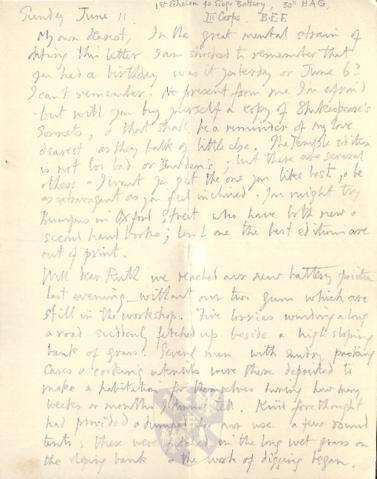 Sunday June 11
1st Echelon 40 Siege Battery, 30th HAG,
II Corps. BEF
My own dearest, In the great mental strain of
dating this letter I am shocked to remember that
you had a birthday was it yesterday or June 6th?
I can't remember. No present from me I'm afraid
- but will you buy yourself a copy of Shakespeare's
Sonnets, & that shall be a reminder of my love
dearest as they talk of little else. The Temple edition
is not too bad or Dowden's; but there are several
others - I want you to get the one you like best, & be
as extravagant as you feel inclined. You might try
Bumpus in Oxford Street who have both new &
second hand books; the best editions are
out of print.
Well dear Ruth we reached our new battery position
last evening - without our two guns which are
still in the workshop. Five lorries winding along
a road suddenly fetched up beside a high sloping
bank of grass. Several men with sundry packing
cases & cooking utensils were there deposited to
make a habitation for themselves during how many
weeks or months I cannot tell. Kind forethought
had provided a dump for our use a few round
tents; these were pitched in the long wet grass on
the sloping bank & the work of digging began.